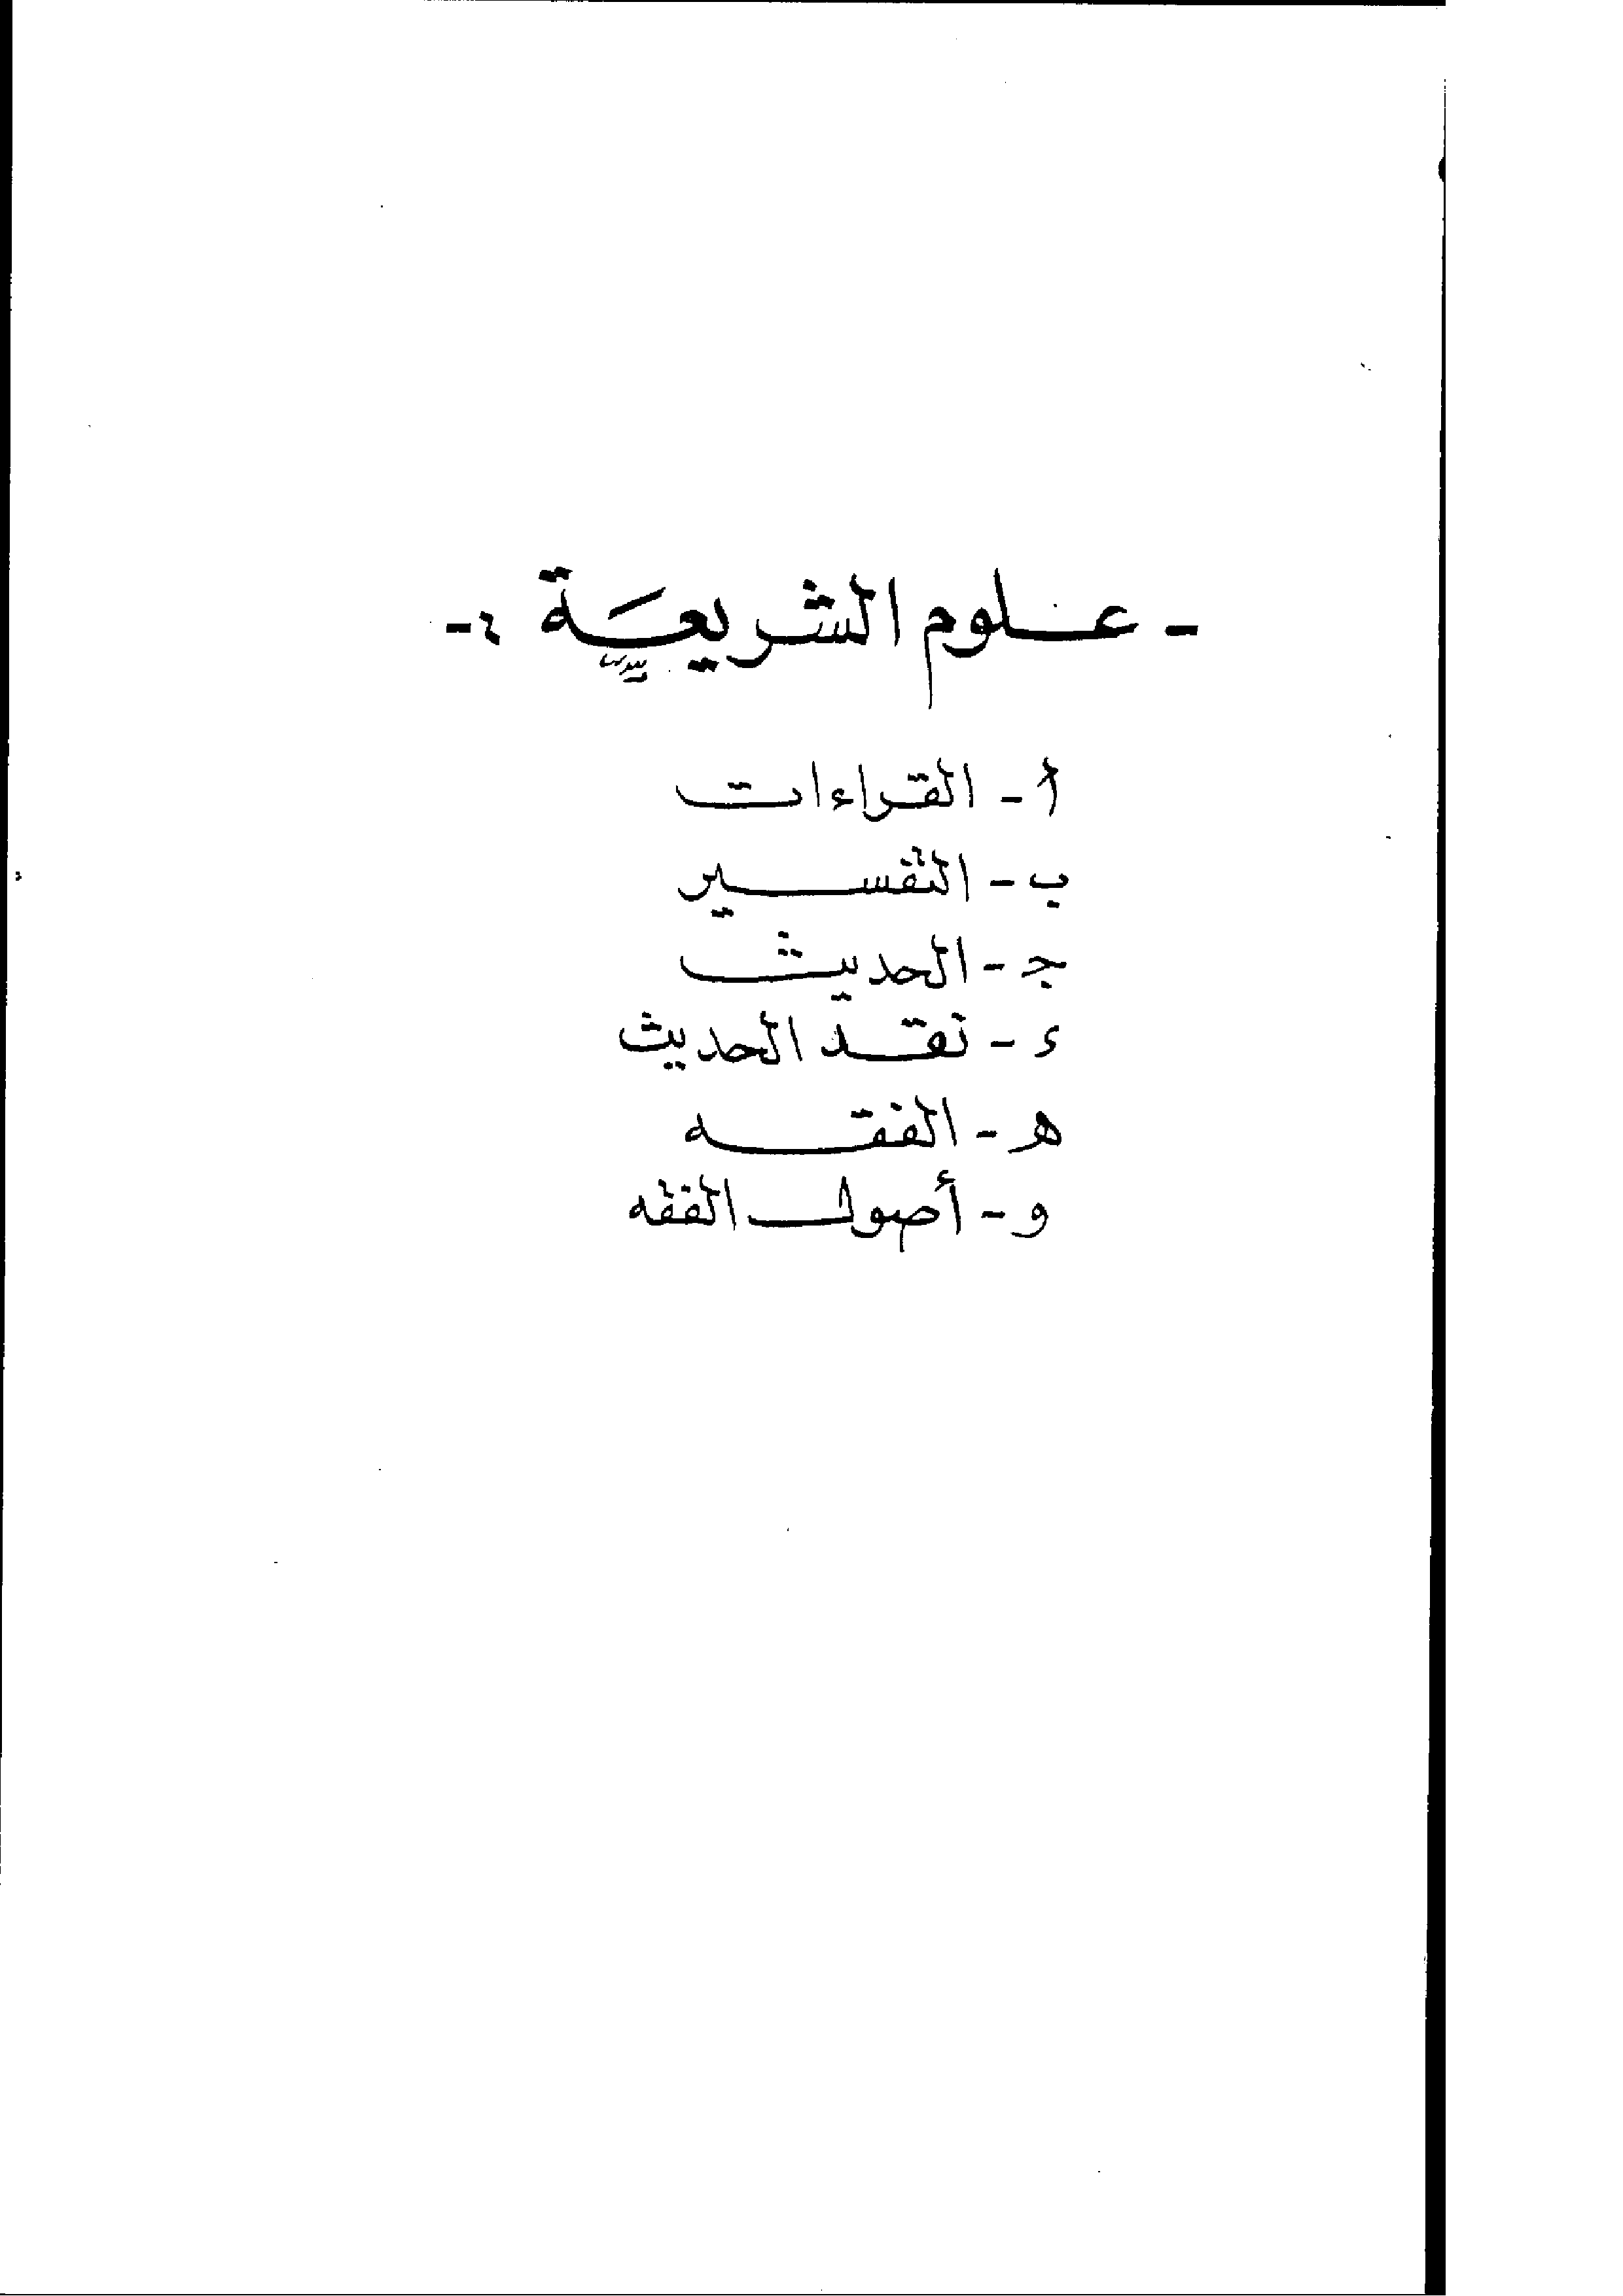 - علوم الشريعة :-
أ - القراءات
ب - التفسير
جـ - الحديث
ء - نقد الحديث
هـ - الفقه
و - أصول الفقه